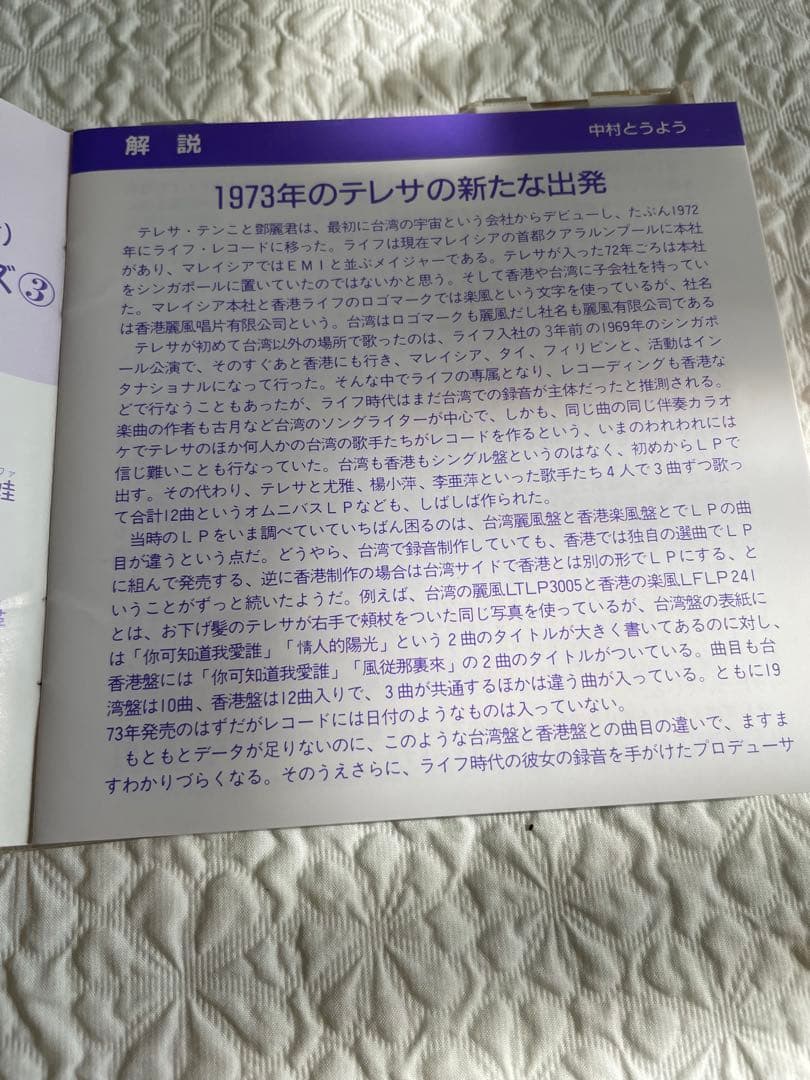 解説
中村とうよう
1973年のテレサの新たな出発
テレサ・テンこと鄧麗君は、最初に台湾の宇宙という会社からデビューし、たぶん1972
年にライフ・レコードに移った。ライフは現在マレイシアの首都クアラルンプールに本社
があり、マレイシアではEMIと並ぶメイジャーである。テレサが入った72年ごろは本社
をシンガポールに置いていたのではないかと思う。そして香港や台湾に子会社を持ってい
た。マレイシア本社と香港ライフのロゴマークでは楽風という文字を使っているが、社名
は香港麗風唱片有限公司という。台湾はロゴマークも麗風だし社名も麗風有限公司である
テレサが初めて台湾以外の場所で歌ったのは、ライフ入社の3年前の1969年のシンガポ
ール公演で、そのすぐあと香港にも行き、マレイシア、タイ、フィリピンと、活動はイン
タナショナルになって行った。そんな中でライフの専属となり、レコーディングも香港な
どで行なうこともあったが、ライフ時代はまだ台湾での録音が主体だったと推測される。
楽曲の作者も古月など台湾のソングライターが中心で、しかも、同じ曲の同じ伴奏カラオ
ケでテレサのほか何人かの台湾の歌手たちがレコードを作るという、いまのわれわれには
信じ難いことも行なっていた。台湾も香港もシングル盤というのはなく、初めからLPで
出す。その代わり、テレサと尤雅、楊小萍、李亜萍といった歌手たち4人で3曲ずつ歌っ
て合計12曲というオムニバスLPなども、しばしば作られた。
当時のLPをいま調べていていちばん困るのは、台湾麗風盤と香港楽風盤とでLPの曲
目が違うという点だ。どうやら、台湾で録音制作していても、香港では独自の選曲でLP
に組んで発売する、逆に香港制作の場合は台湾サイドで香港とは別の形でLPにする、と
いうことがずっと続いたようだ。例えば、台湾の麗風LTLP3005と香港の楽風LFLP241
とは、お下げ髪のテレサが右手で頬杖をついた同じ写真を使っているが、台湾盤の表紙に
は「你可知道我愛誰」「情人的陽光」という2曲のタイトルが大きく書いてあるのに対し、
香港盤には「你可知道我愛誰」「風従那裏來」の2曲のタイトルがついている。曲目も台
湾盤は10曲、香港盤は12曲入りで、3曲が共通するほかは違う曲が入っている。ともに19
73年発売のはずだがレコードには日付のようなものは入っていない。
もともとデータが足りないのに、このような台湾盤と香港盤との曲目の違いで、ますま
すわかりづらくなる。そのうえさらに、ライフ時代の彼女の録音を手がけたプロデューサ
ズ③
ファ